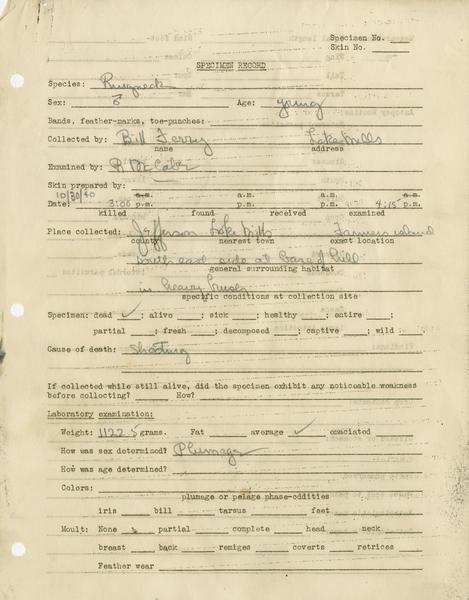 Specimen No. ____
Skin No. ____
SPECIMEN RECORD
Species: Ringneck
Sex: ♂ Age: young
Bands, feather-marks, toe-punches:
Collected by: Bill Ferry Lake Mills
name address
Examined by: R McCabe
Skin prepared by:
10/30/40 a.m. a.m. a.m. a.m.
Date: 3:00 p.m. p.m. p.m. 4:15 p.m.
killed found received examined
Place collected: Jefferson Lake Mills Farmers island
county nearest town exact location
South east side at base of hill
general surrounding habitat
in heavy brush
specific conditions at collection site
Specimen: dead ✓; alive ____; sick ____; healthy ____; entire ____;
partial ____; fresh ____; decomposed ____; captive ____; wild ____.
Cause of death: Shooting
If collected while still alive, did the specimen exhibit any noticeable weakness
before collecting? ____ How? ____
Laboratory examination:
Weight: 1122.5 grams. Fat ____ average ✓ emaciated
How was sex determined? Plumage
How was age determined?
Colors:
plumage or pelage phase-oddities
iris ____ bill ____ tarsus ____ feet ____
Moult: None ____ partial ____ complete ____ head ____ neck ____
breast ____ back ____ remiges ____ coverts ____ retrices ____
Feather wear ____